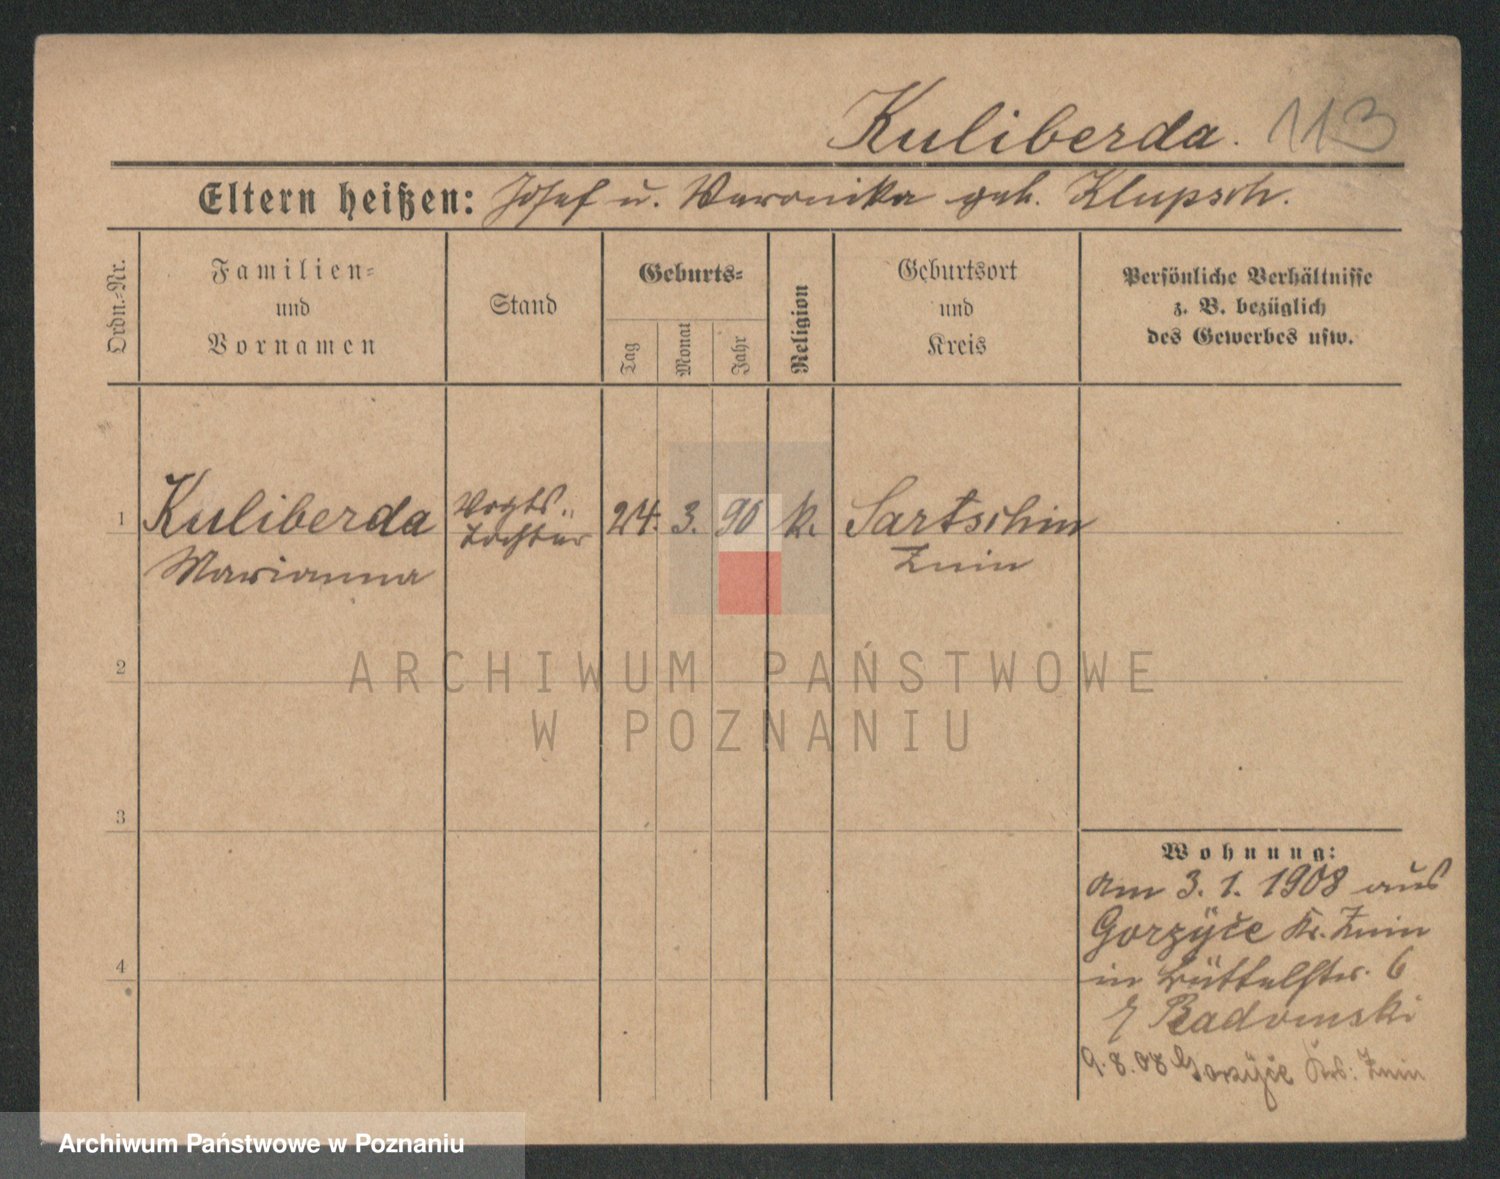 Kuliberda. 113
Eltern heißen: Josef u. Veronika geb. Klupsch.
Ordn.-Nr.
Familien-
und
Vornamen
Stand
Geburts-
Tag
Monat
Jahr
Religion
Geburtsort
und
Kreis
Persönliche Verhältnisse
z. B. bezüglich
des Gewerbes usw.
1
Kuliberda
Marianna
Vogts-
tochter
24. 3. 90 k.
Sartschin
Znin
2
3
4
Wohnung:
Am 3. 1. 1908 aus
Gorzÿce Kr. Znin
in Büttelstr. 6
Radomski
9.8.08 Gorzÿce Krs: Znin
ARCHIWUM PAŃSTWOWE
W POZNANIU
Archiwum Państwowe w Poznaniu